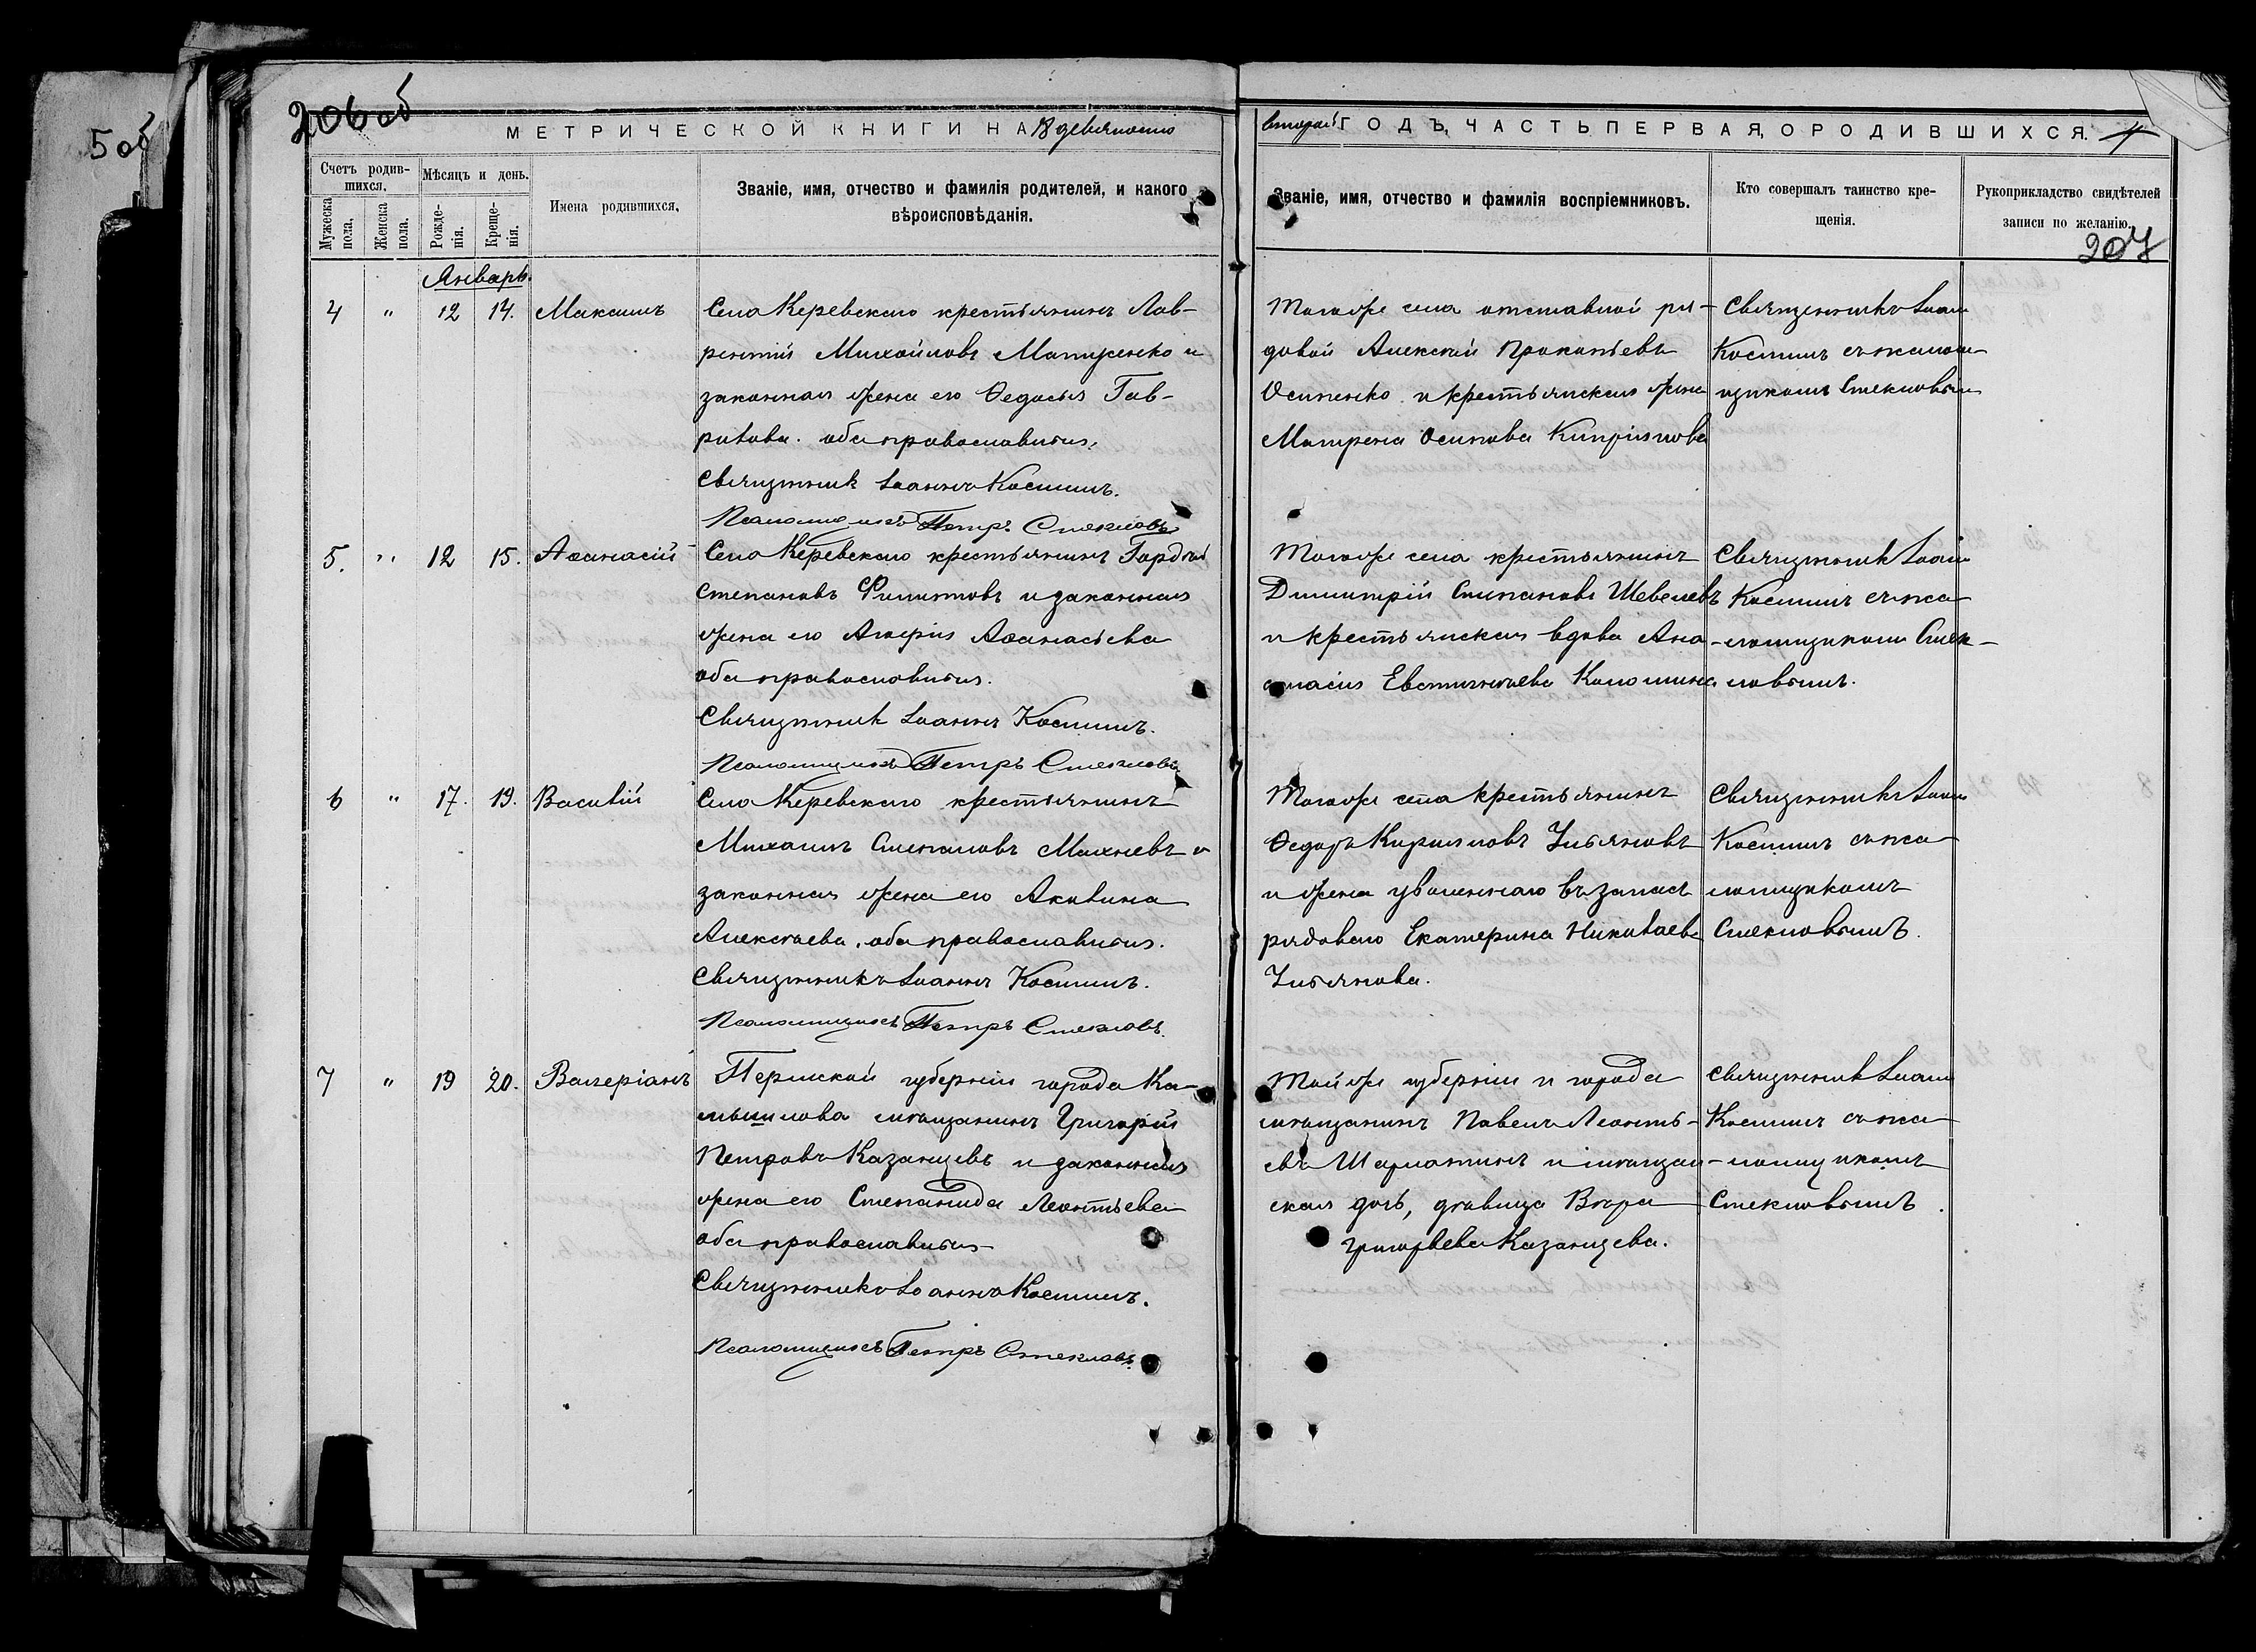 5 об
206 об
МЕТРИЧЕСКОЙ КНИГИ НА 18 девяносто
второй ГОДЪ, ЧАСТЬ ПЕРВАЯ, О РОДИВШИХСЯ. 4
Счетъ родив-
шихся.
Мѣсяцъ и день.
Имена родившихся.
Званіе, имя, отчество и фамилія родителей, и какого
вѣроисповѣданія.
Мужеска
пола.
Женска
пола.
Рожде-
нія.
Креще-
нія.
Званіе, имя, отчество и фамилія воспріемниковъ.
Кто совершалъ таинство кре-
щенія.
Рукоприкладство свидѣтелей
записи по желанію.
207
Январь.
4 " 12 14. Максимъ
Села Керевскаго крестьянинъ Лав-
рентій Михайловъ Матусенко и
законная жена его Ѳедосья Гав-
рилова. оба православныя.
Священникъ Іоаннъ Косминъ.
Псаломщикъ Петръ Стекловъ
Тогоже села отставной ря-
довой Алексѣй Прокопьевъ
Осипенко и крестьянская жена
Матрена Осипова Кипріянова
Священникъ Іоаннъ
Косминъ съ псалом-
щикомъ Стекловым
5. " 12 15. Аѳанасій
Села Керевскаго крестьянинъ Гордѣй
Степановъ Филиповъ и законная
жена его Агафья Аѳанасьева
оба православныя.
Священникъ Іоаннъ Косминъ.
Псаломщикъ Петръ Стекловъ
Тогоже села крестьянинъ
Димитрій Степановъ Шевелевъ
и крестьянская вдова Ана-
стасія Евстигнѣева Коломина
Священникъ Іоанн
Косминъ съ пса-
ломщикомъ Стек-
ловымъ.
6 " 17. 19. Василій
Села Керевскаго крестьянинъ
Михаилъ Степановъ Махневъ и
законная жена его Акилина
Алексѣева. оба православныя.
Священникъ Іоаннъ Косминъ.
Псаломщикъ Петръ Стекловъ.
Тогоже села крестьянинъ
Ѳедоръ Кирилловъ Ульяновъ
и жена уволеннаго въ запасъ
рядоваго Екатерина Николаева
Ульянова.
Священникъ Іоанн
Косминъ съ пса-
ломщикомъ
Стекловымъ.
7 " 19 20. Валеріанъ
Пермской губерніи города Ка-
мышлова мѣщанинъ Григорій
Петровъ Казанцевъ и законная
жена его Степанида Леонтьева
оба православныя
Священникъ Іоаннъ Косминъ.
Псаломщикъ Петръ Стекловъ.
Тойже губерніи и города
мѣщанинъ Павелъ Леонть-
евъ Шарматинъ и мѣщан-
ская дочь, дѣвица Вѣра
Григорьева Казанцева.
Священникъ Іоанн
Косминъ съ пса-
ломщикомъ
Стекловымъ.